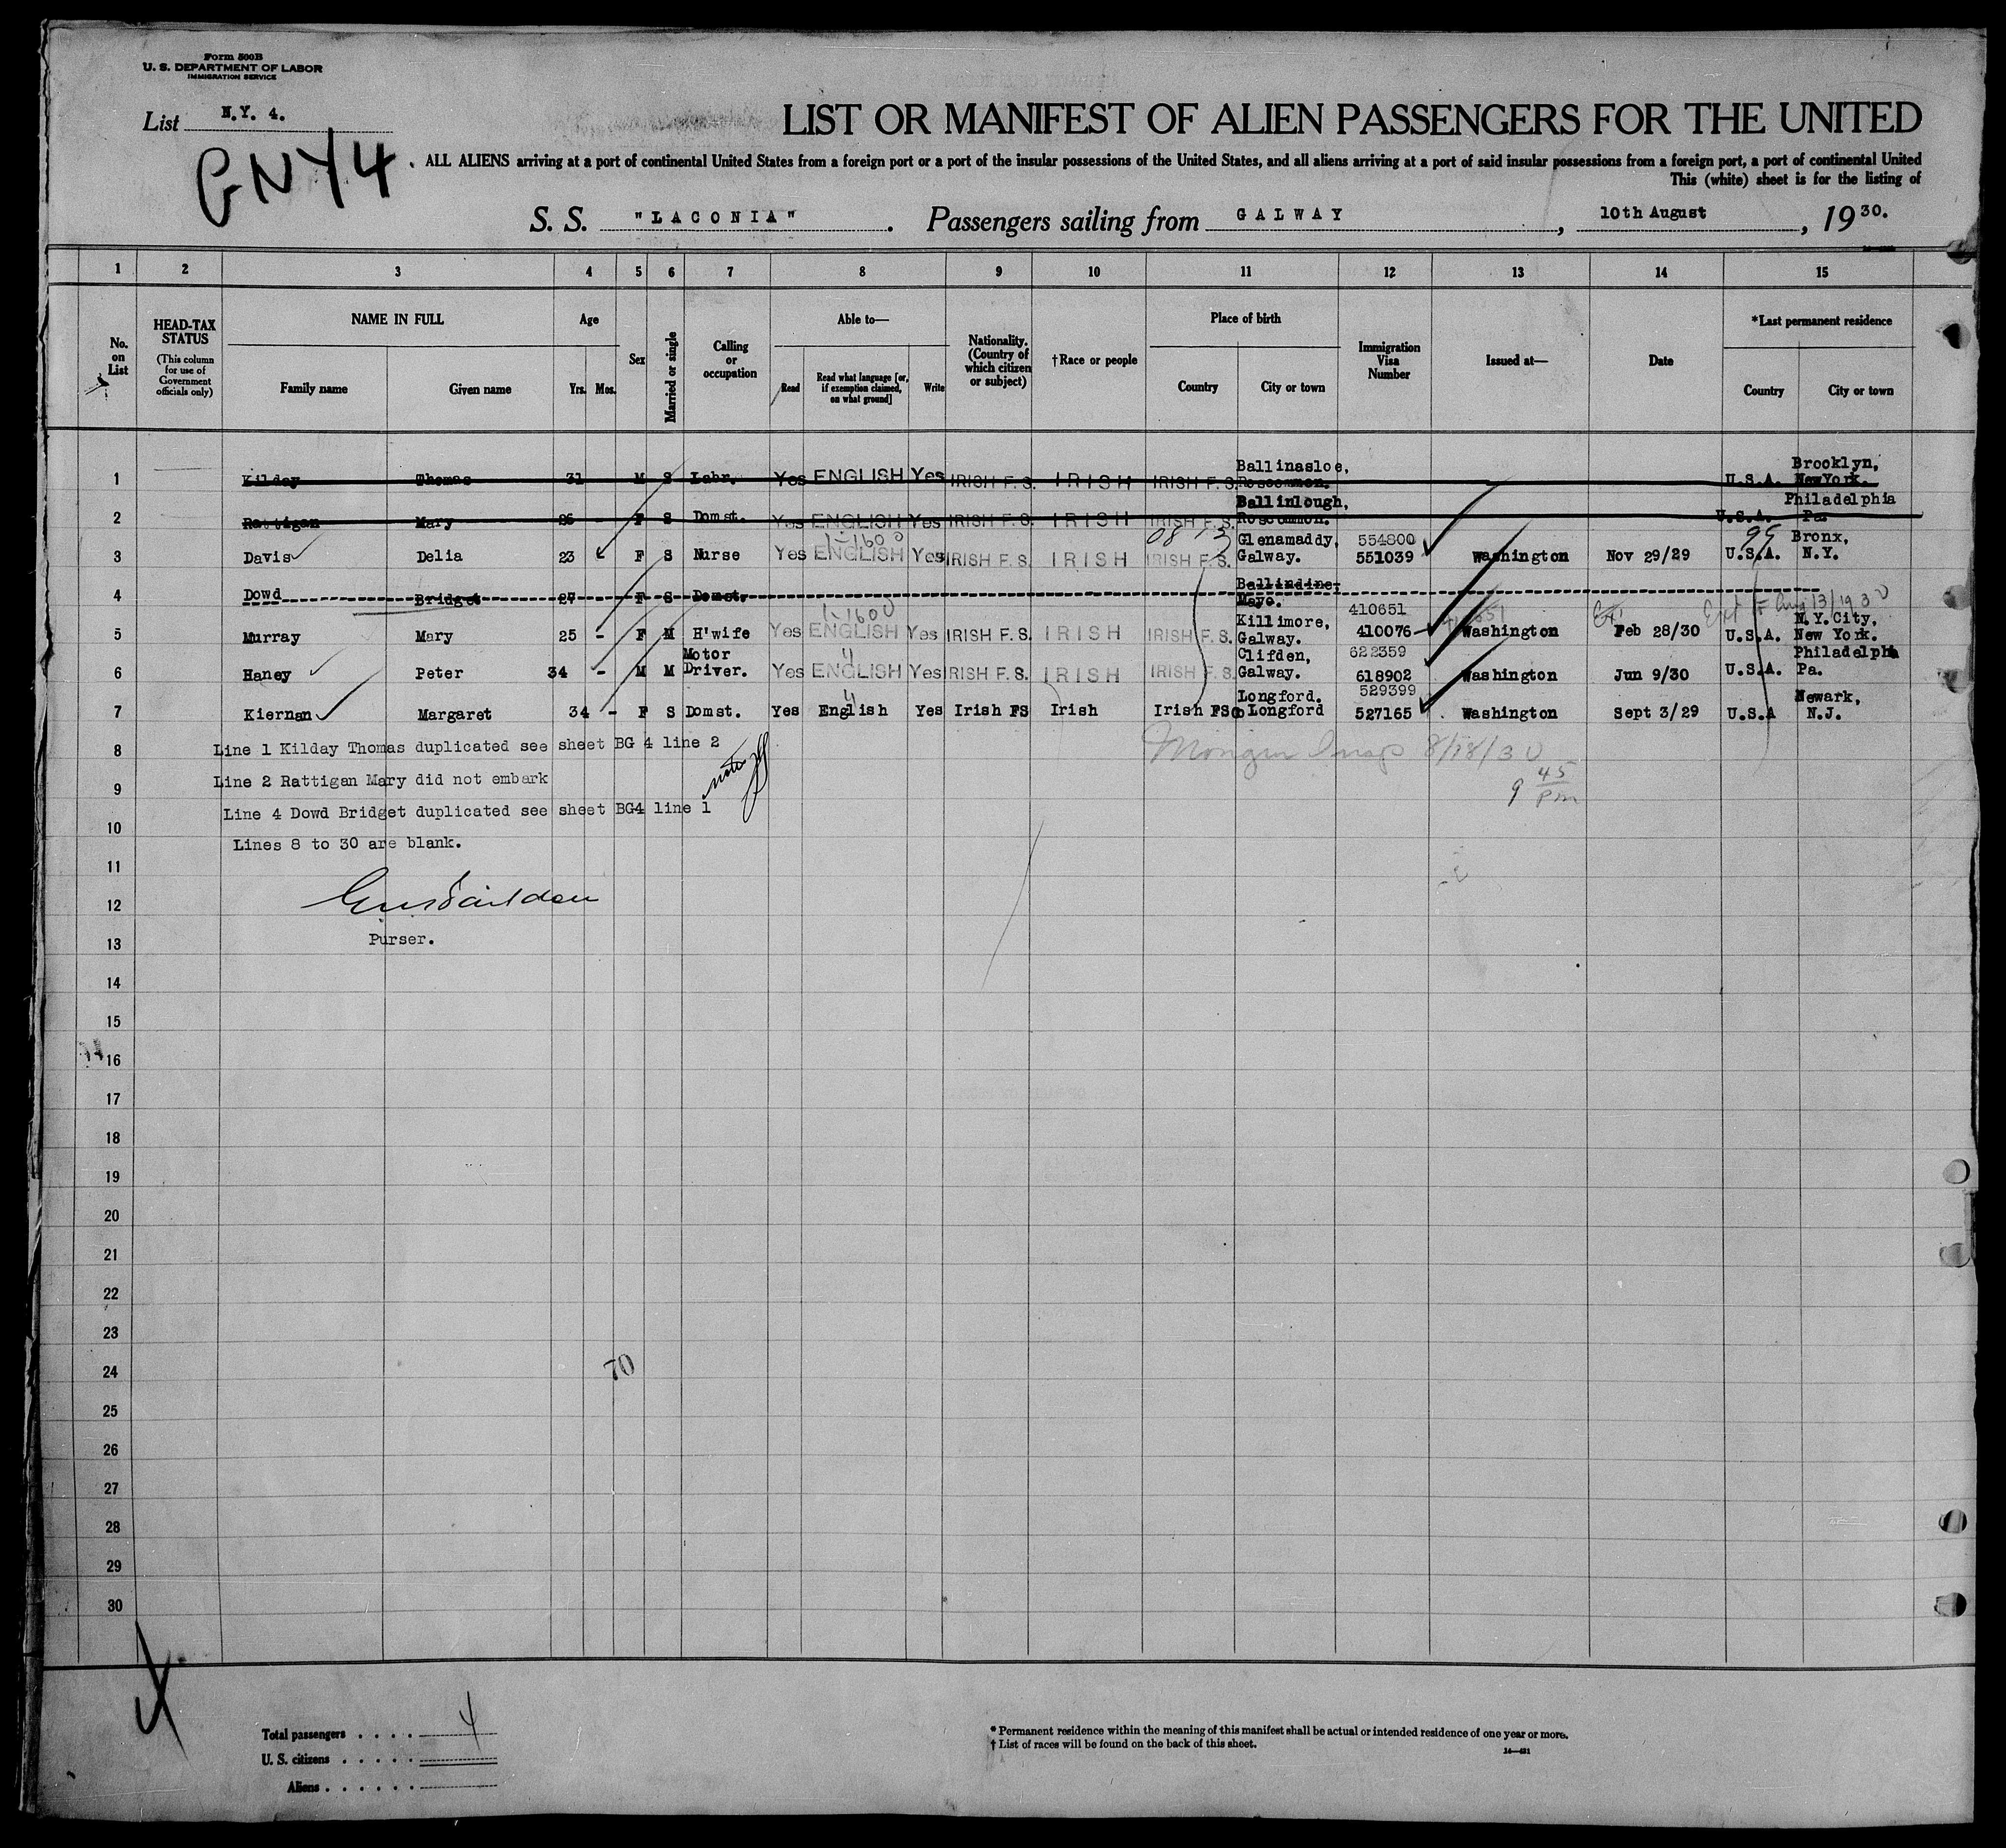 Form 500B
U. S. DEPARTMENT OF LABOR
IMMIGRATION SERVICE
List N.Y. 4.
GNY4
LIST OR MANIFEST OF ALIEN PASSENGERS FOR THE UNITED
ALL ALIENS arriving at a port of continental United States from a foreign port or a port of the insular possessions of the United States, and all aliens arriving at a port of said insular possessions from a foreign port, a port of continental United
This (white) sheet is for the listing of
S. S. "LACONIA". Passengers sailing from GALWAY, 10th August, 1930.
1 2 3 4 5 6 7 8 9 10 11 12 13 14 15
No. on List
HEAD-TAX STATUS (This column for use of Government officials only)
NAME IN FULL Family name Given name
Age Yrs. Mos.
Sex
Married or single
Calling or occupation
Able to— Read Read what language [or, if exemption claimed, on what ground] Write
Nationality. (Country of which citizen or subject)
†Race or people
Place of birth Country City or town
Immigration Visa Number
Issued at—
Date
*Last permanent residence Country City or town
1 Kilday Thomas 31 M S Labr. Yes ENGLISH Yes IRISH F.S. IRISH IRISH F.S. Ballinasloe, Roscommon. U.S.A. Brooklyn, NewYork.
2 Rattigan Mary 26 - F S Domst. Yes ENGLISH Yes IRISH F.S. IRISH IRISH F.S. Ballinlough, Roscommon. U.S.A. Philadelphia Pa.
1-1600 08 13 95
3 Davis Delia 23 F S Nurse Yes ENGLISH Yes IRISH F.S. IRISH IRISH F.S. Glenamaddy, Galway. 554800 551039 Washington Nov 29/29 U.S.A. Bronx, N.Y.
4 Dowd Bridget 27 - F S Domst. Ballindine, Mayo.
1-1600 Ext Aug 13/1930
5 Murray Mary 25 - F M H'wife Yes ENGLISH Yes IRISH F.S. IRISH IRISH F.S. Killimore, Galway. 410651 410076 Washington Feb 28/30 U.S.A. N.Y.City, New York.
4
6 Haney Peter 34 - M M Motor Driver. Yes ENGLISH Yes IRISH F.S. IRISH IRISH F.S. Clifden, Galway. 622359 618902 Washington Jun 9/30 U.S.A. Philadelphia Pa.
4
7 Kiernan Margaret 34 - F S Domst. Yes English Yes Irish FS Irish Irish FS Longford. Co Longford 529399 527165 Washington Sept 3/29 U.S.A Newark, N.J.
8 Line 1 Kilday Thomas duplicated see sheet BG 4 line 2
8/18/30
9 Line 2 Rattigan Mary did not embark
noted
9 45 pm
Line 4 Dowd Bridget duplicated see sheet BG4 line 1
10
Lines 8 to 30 are blank.
11
12
13 Purser.
14
15
16
17
18
19
20
21
22
23
24 70
25
26
27
28
29
30
Total passengers . . . . 4
U. S. citizens . . . . .
Aliens . . . . . .
* Permanent residence within the meaning of this manifest shall be actual or intended residence of one year or more.
† List of races will be found on the back of this sheet.
14—421